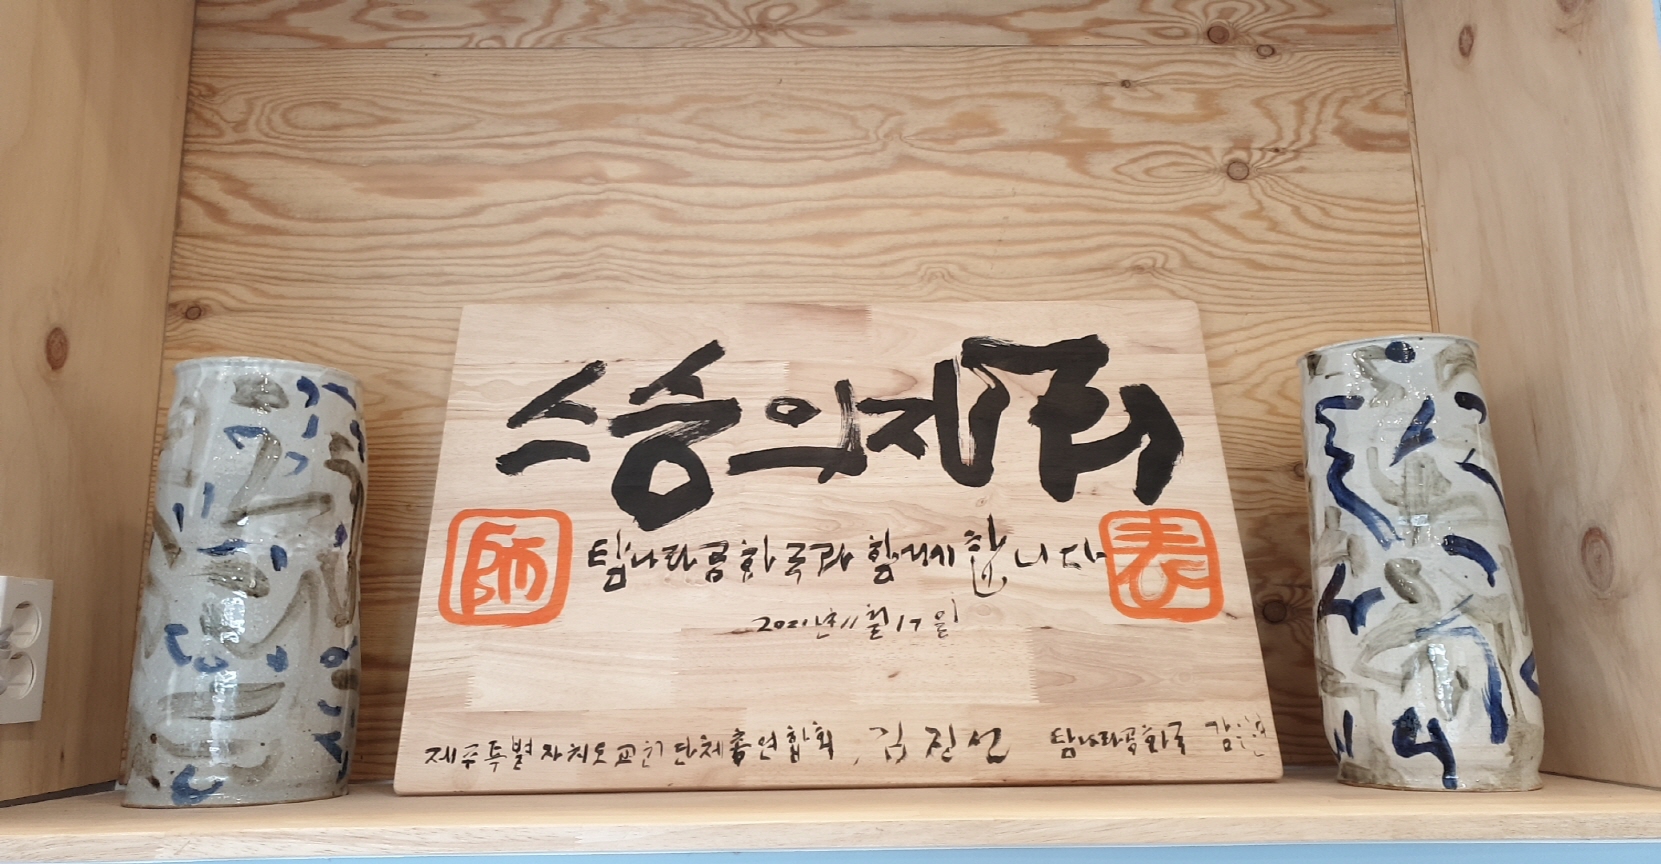 스승의 자리
師
탐나라공화국과 함께 합니다
表
2021년 11월 17일
제주특별자치도교원단체총연합회, 김진선 탐나라공화국